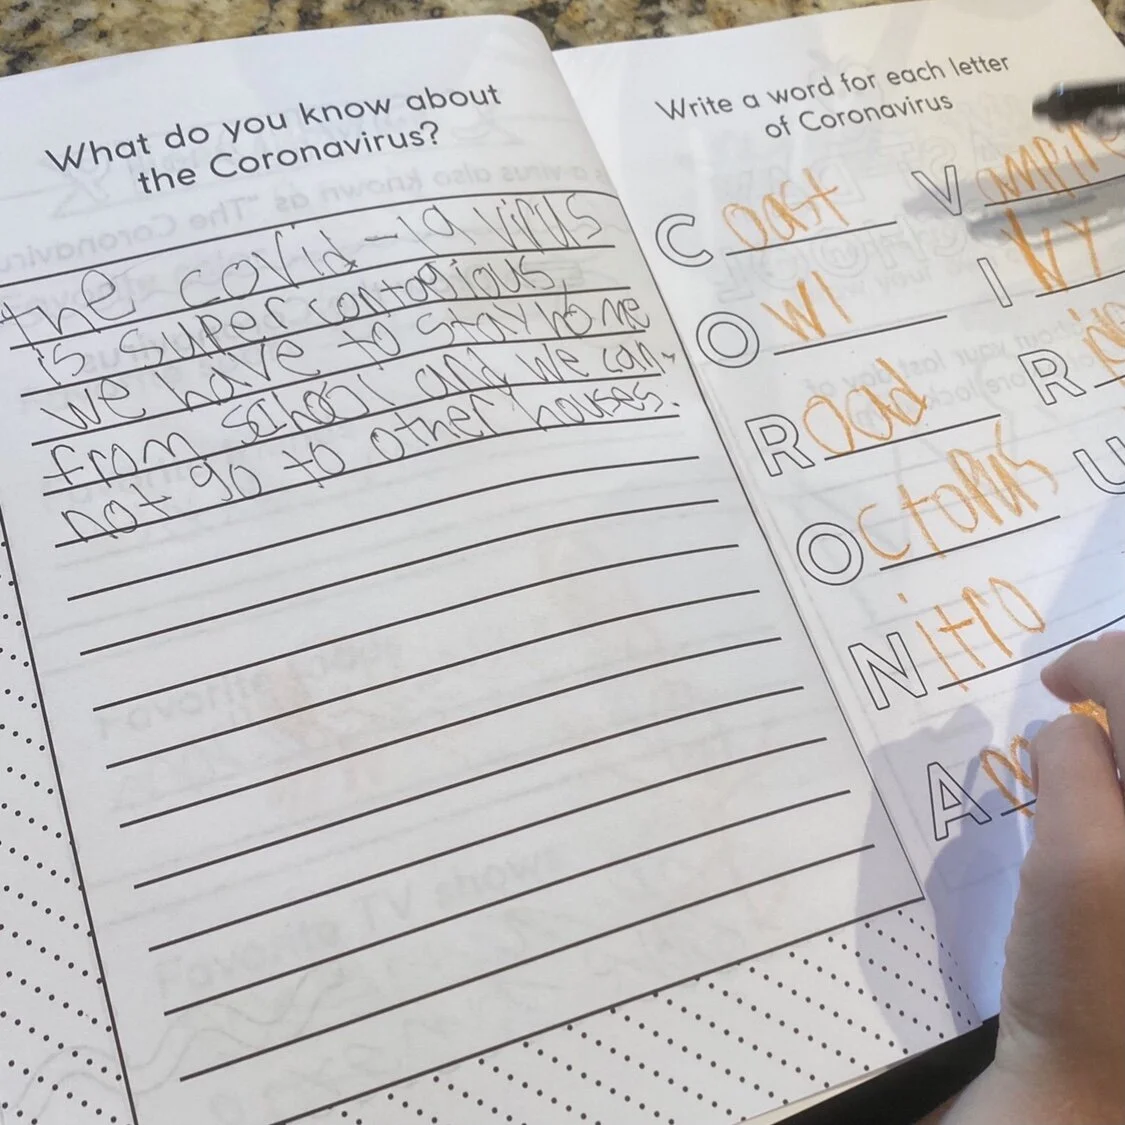 What do you know about
the Coronavirus?
the covid-19 virus
is super contagious,
we have to stay home
from school and we can-
not go to other houses.
Write a word for each letter
of Coronavirus
Coast
Owl
Road
Octopus
Nitro
A
Vampire
Ivy
R
U